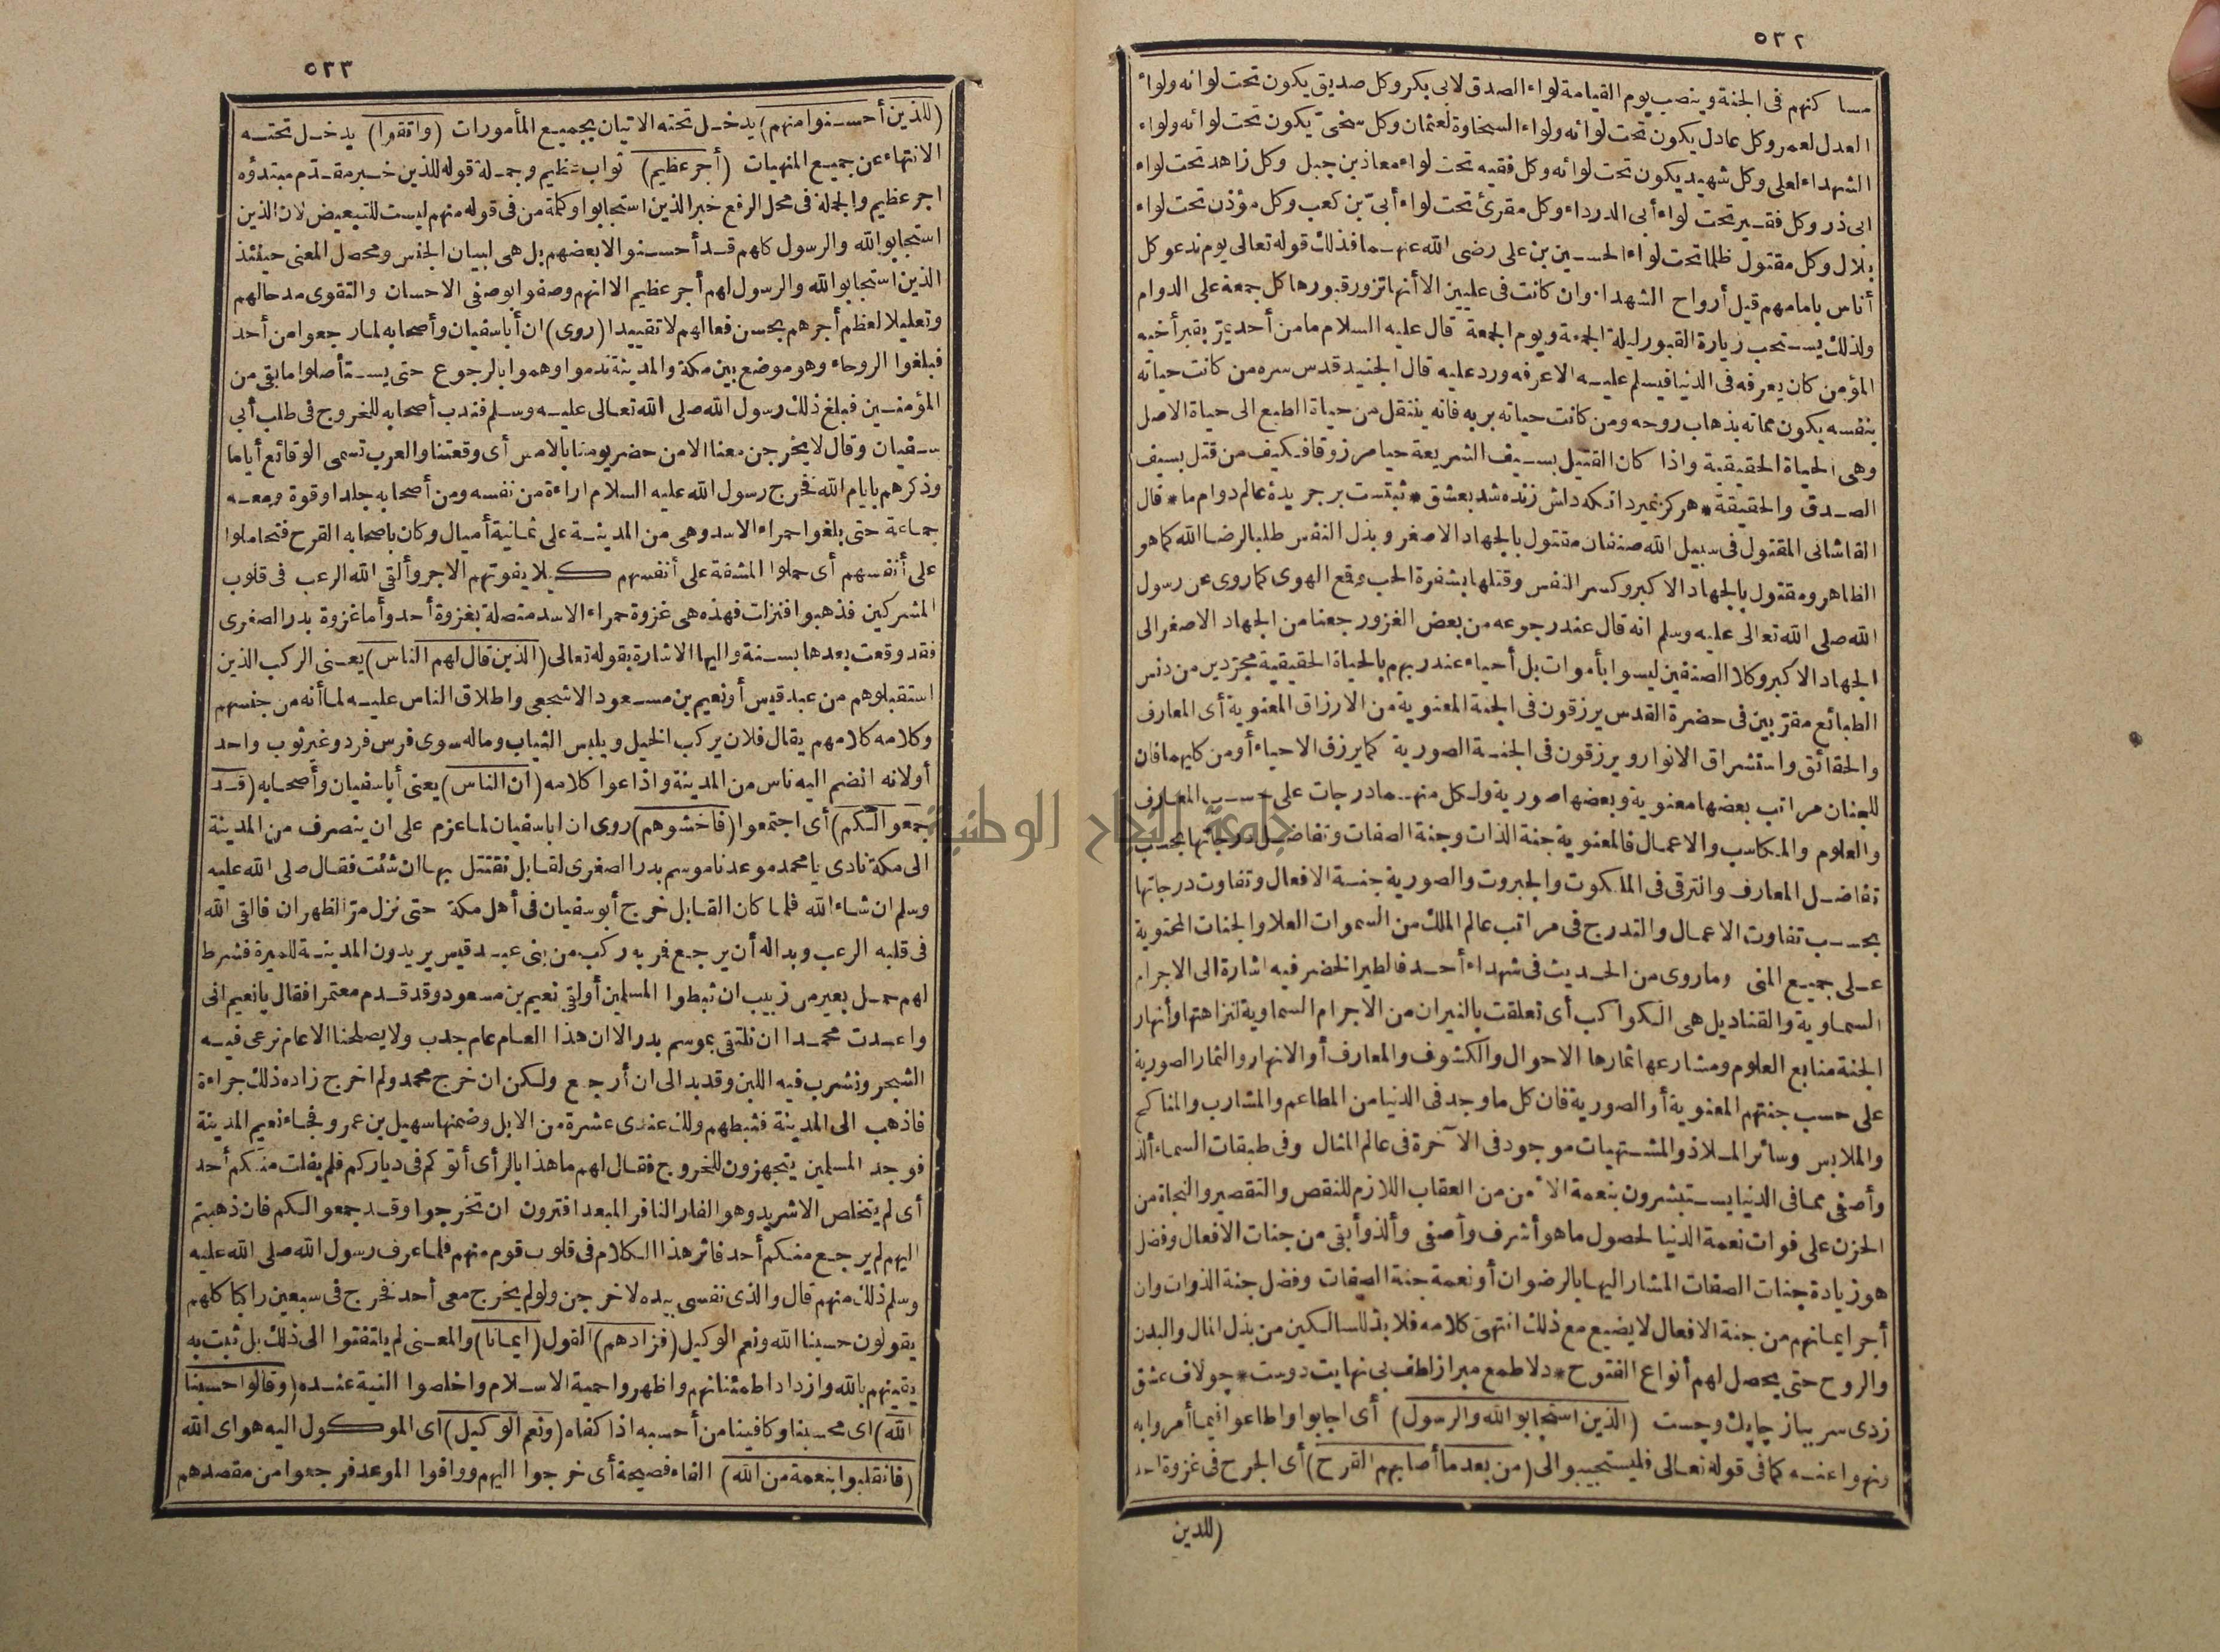 ٥٣٢
مساكنهم فى الجنة وينصب يوم القيامة لواء الصدق لابى بكر وكل صديق يكون تحت لوائه ولواء
العدل لعمر وكل عادل يكون تحت لوائه ولواء السخاوة لعثمان وكل سخىّ يكون تحت لوائه ولواء
الشهداء لعلى وكل شهيد يكون تحت لوائه وكل فقيه تحت لواء معاذ بن جبل وكل زاهد تحت لواء
ابى ذر وكل فقير تحت لواء أبى الدرداء وكل مقرئ تحت لواء أبىّ بن كعب وكل مؤذن تحت لواء
بلال وكل مقتول ظلما تحت لواء الحسين بن على رضى الله عنهما فذلك قوله تعالى يوم ندعو كل
أناس بامامهم قيل أرواح الشهداء وان كانت فى عليين الا أنها تزور قبورها كل جمعة على الدوام
ولذلك يستحب زيارة القبور ليلة الجمعة ويوم الجمعة قال عليه السلام مامن أحد يمرّ بقبر أخيه
المؤمن كان يعرفه فى الدنيا فيسلم عليه الا عرفه ورد عليه قال الجنيد قدس سره من كانت حياته
بنفسه يكون مماته بذهاب روحه ومن كانت حياته بربه فانه ينتقل من حياة الطبع الى حياة الاصل
وهى الحياة الحقيقية واذا كان القتيل بسيف الشريعة حيا مرزوقا فكيف من قتل بسيف
الصدق والحقيقة * هركز نميرد آنكه دلش زنده شد بعشق * ثبتست بر جريدهٔ عالم دوام ما * قال
القاشانى المقتول فى سبيل الله صنفان مقتول بالجهاد الاصغر وبذل النفس طلبا لرضا الله كما هو
الظاهر ومقتول بالجهاد الاكبر وكسر النفس وقتلها بشفرة الحب وقع الهوى كما روى عن رسول
الله صلى الله تعالى عليه وسلم انه قال عند رجوعه من بعض الغزو رجعنا من الجهاد الاصغر الى
الجهاد الاكبر وكلا الصنفين ليسوا بأموات بل أحياء عند ربهم بالحياة الحقيقية مجرّدين من دنس
الطبائع مقرّبين فى حضرة القدس يرزقون فى الجنة المعنوية من الارزاق المعنوية أى المعارف
والحقائق واستشراق الانوار ويرزقون فى الجنة الصورية كما يرزق الاحياء أو من كليهما فان
للجنان مراتب بعضها معنوية وبعضها صورية ولكل منهما درجات على حسب المعارف
والعلوم والمكاسب والاعمال فالمعنوية جنة الذات وجنة الصفات وتفاضل درجاتها بحسب
تفاضل المعارف والترقى فى الملكوت والجبروت والصورية جنة الافعال وتفاوت درجاتها
بحسب تفاوت الاعمال والتدرج فى مراتب عالم الملك من السموات العلا والجنات المحتوية
على جميع المنى وماروى من الحديث فى شهداء أحد فالطير الخضر فيه اشارة الى الاجرام
السماوية والقناديل هى الكواكب أى تعلقت بالنيران من الاجرام السماوية لنزاهتها وأنهار
الجنة منابع العلوم ومشارعها ثمارها الاحوال والكشوف والمعارف أو الانهار والثمار الصورية
على حسب جنتهم المعنوية أو الصورية فان كل ما وجد فى الدنيا من المطاعم والمشارب والمناكح
والملابس وسائر الملاذ والمشتهيات موجود فى الآخرة فى عالم المثال وفى طبقات السماء ألذ
وأصفى مما فى الدنيا يستبشرون بنعمة الأمن من العقاب اللازم للنقص والتقصير والنجاة من
الحزن على فوات نعمة الدنيا لحصول ما هو أشرف وأصفى وألذ وأبقى من جنات الافعال وفضل
هو زيادة جنات الصفات المشار اليها بالرضوان أو نعمة جنة الصفات وفضل جنة الذوات وان
أجر ايمانهم من جنة الافعال لا يضيع مع ذلك انتهى كلامه فلا بدّ للسالكين من بذل المال والبدن
والروح حتى يحصل لهم أنواع الفتوح * دلا طمع مبر از لطف بى نهايت دوست * چو لاف عشق
زدى سر بباز چابك وچست (الذين استجابوا لله والرسول) أى اجابوا واطاعوا فيما أمروا به
ونهوا عنه كما فى قوله تعالى فليستجيبوا لى (من بعد ما أصابهم القرح) أى الجرح فى غزوة احد
(للذين
٥٣٣
(للذين أحسنوا منهم) يدخل تحته الاتيان بجميع المأمورات (واتقوا) يدخل تحته
الانتهاء عن جميع المنهيات (أجر عظيم) ثواب عظيم وجملة قوله للذين خبر مقدّم مبتدؤه
اجر عظيم والجملة فى محل الرفع خبر الذين استجابوا وكلمة من فى قوله منهم ليست للتبعيض لان الذين
استجابوا لله والرسول كلهم قد أحسنوا لا بعضهم بل هى لبيان الجنس ومحصل المعنى حينئذ
الذين استجابوا لله والرسول لهم أجر عظيم الا انهم وصفوا بوصفى الاحسان والتقوى مدحا لهم
وتعليلا لعظم أجرهم بحسن فعالهم لا تقييدا (روى) ان أباسفيان وأصحابه لما رجعوا من أحد
فبلغوا الروحاء وهو موضع بين مكة والمدينة ندموا وهموا بالرجوع حتى يستأصلوا ما بقى من
المؤمنين فبلغ ذلك رسول الله صلى الله تعالى عليه وسلم فندب أصحابه للخروج فى طلب أبى
سفيان وقال لا يخرجن معنا الا من حضر يومنا بالامس أى وقعتنا والعرب تسمى الوقائع أياما
وذكرهم بايام الله فخرج رسول الله عليه السلام اراءة من نفسه ومن أصحابه جلدا وقوة ومعه
جماعة حتى بلغوا حمراء الاسد وهى من المدينة على ثمانية أميال وكان باصحابه القرح فتحاملوا
على أنفسهم أى حملوا المشقة على أنفسهم كيلا يفوتهم الاجر وألقى الله الرعب فى قلوب
المشركين فذهبوا فنزلت فهذه هى غزوة حمراء الاسد متصلة بغزوة أحد وأما غزوة بدر الصغرى
فقد وقعت بعدها بسنة واليها الاشارة بقوله تعالى (الذين قال لهم الناس) يعنى الركب الذين
استقبلوهم من عبد قيس أو نعيم بن مسعود الاشجعى واطلاق الناس عليه لما أنه من جنسهم
وكلامه كلامهم يقال فلان يركب الخيل ويلبس الثياب وماله سوى فرس فرد وغير ثوب واحد
أو لانه انضم اليه ناس من المدينة واذاعوا كلامه (ان الناس) يعنى أباسفيان وأصحابه (قد
جمعوا لكم) أى اجتمعوا (فاخشوهم) روى ان اباسفيان لما عزم على ان ينصرف من المدينة
الى مكة نادى يا محمد موعدنا موسم بدر الصغرى لقابل نقتتل بها ان شئت فقال صلى الله عليه
وسلم ان شاء الله فلما كان القابل خرج أبوسفيان فى أهل مكة حتى نزل مرّ الظهران فالقى الله
فى قلبه الرعب وبدا له أن يرجع فمر به ركب من بنى عبد قيس يريدون المدينة للميرة فشرط
لهم حمل بعير من زبيب ان ثبطوا المسلمين أو لقى نعيم بن مسعود وقد قدم معتمرا فقال يا نعيم انى
واعدت محمدا ان نلتقى بموسم بدر الا ان هذا العام عام جدب ولا يصلحنا الا عام نرعى فيه
الشجر ونشرب فيه اللبن وقد بدا لى ان أرجع ولكن ان خرج محمد ولم اخرج زاده ذلك جراءة
فاذهب الى المدينة فثبطهم ولك عندى عشرة من الابل وضمنها سهيل بن عمرو فجاء نعيم المدينة
فوجد المسلمين يتجهزون للخروج فقال لهم ما هذا بالرأى أتوكم فى دياركم فلم يفلت منكم أحد
أى لم يتخلص الا شريد وهو الفار النافر المبعد افترون ان تخرجوا وقد جمعوا لكم فان ذهبتم
اليهم لم يرجع منكم أحد فاثر هذا الكلام فى قلوب قوم منهم فلما عرف رسول الله صلى الله عليه
وسلم ذلك منهم قال والذى نفسى بيده لاخرجن ولو لم يخرج معى أحد فخرج فى سبعين راكبا كلهم
يقولون حسبنا الله ونعم الوكيل (فزادهم) القول (ايمانا) والمعنى لم يلتفتوا الى ذلك بل ثبت به
يقينهم بالله وازداد اطمئنانهم واظهروا حمية الاسلام واخلصوا النية عنده (وقالوا حسبنا
الله) اى محسبنا وكافينا من أحسبه اذا كفاه (ونعم الوكيل) اى الموكول اليه هو اى الله
(فانقلبوا بنعمة من الله) الفاء فصيحة أى خرجوا اليهم ووافوا الموعد فرجعوا من مقصدهم
جامعة النجاح الوطنية